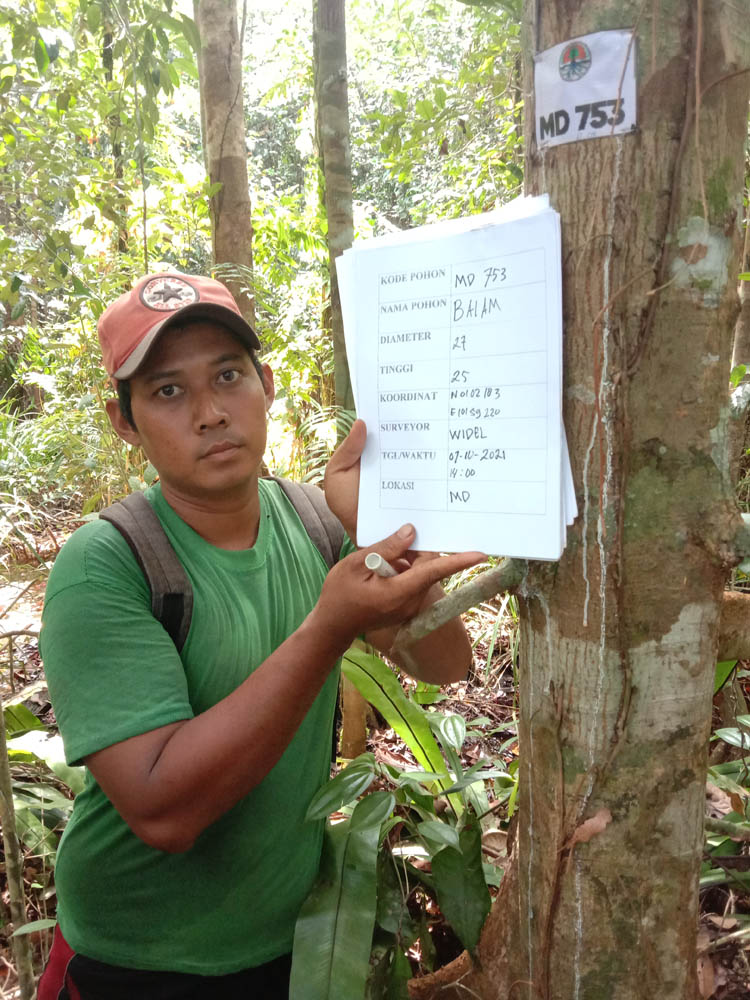 MD 753
KODE POHON MD 753
NAMA POHON BALAM
DIAMETER 27
TINGGI 25
KOORDINAT N 01 02 183
E 101 59 220
SURVEYOR WIDEL
TGL/WAKTU 07-10-2021
14:00
LOKASI MD